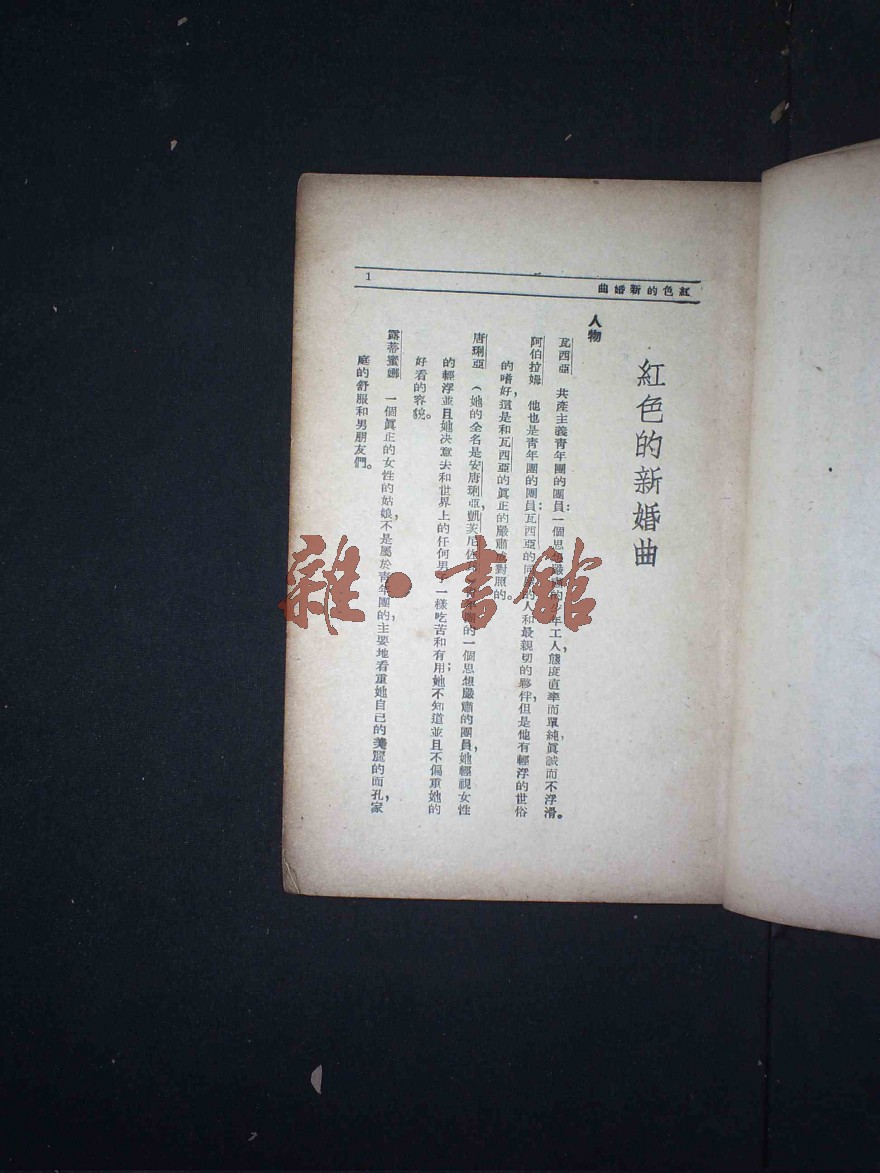 1
紅色的新婚曲
紅色的新婚曲
人物
瓦西亞　共產主義青年團的團員：一個思想嚴肅的少年工人，態度直率而單純，眞誠而不浮滑。
阿伯拉姆　他也是青年團的團員：瓦西亞的同房的人和最親切的夥伴，但是他有輕浮的世俗
的嗜好，這是和瓦西亞的眞正的嚴肅成對照的。
唐琍亞　（她的全名是安唐琍亞，凱茨尼佐 的一個思想嚴肅的團員，她輕視女性
的輕浮並且她决意去和世界上的任何男 一樣吃苦和有用；她不知道並且不偏重她的
好看的容貌。
露蒂蜜娜　一個眞正的女性的姑娘，不是屬於青年團的，主要地看重她自己的美麗的面孔，家
庭的舒服和男朋友們。
雜·書館